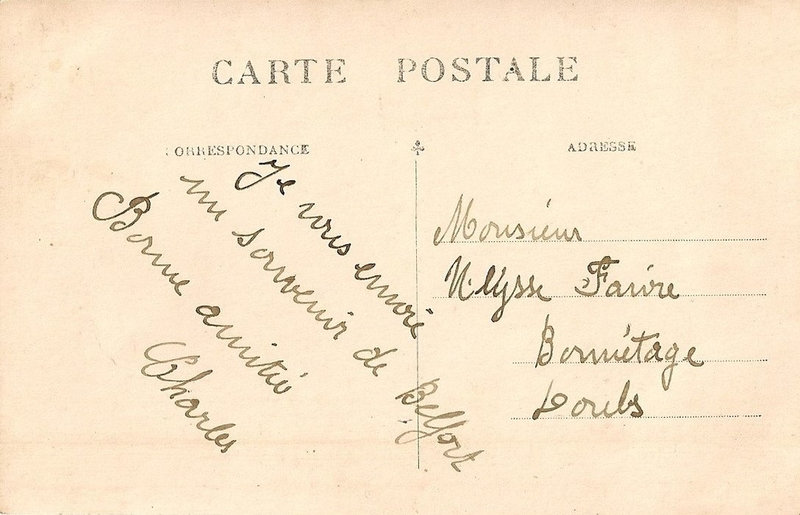 CARTE POSTALE
CORRESPONDANCE
ADRESSE
Je vous envoie
un souvenir de Belfort
Bonne amitié
Charles
Monsieur
Ulysse Faivre
Bonnétage
Doubs